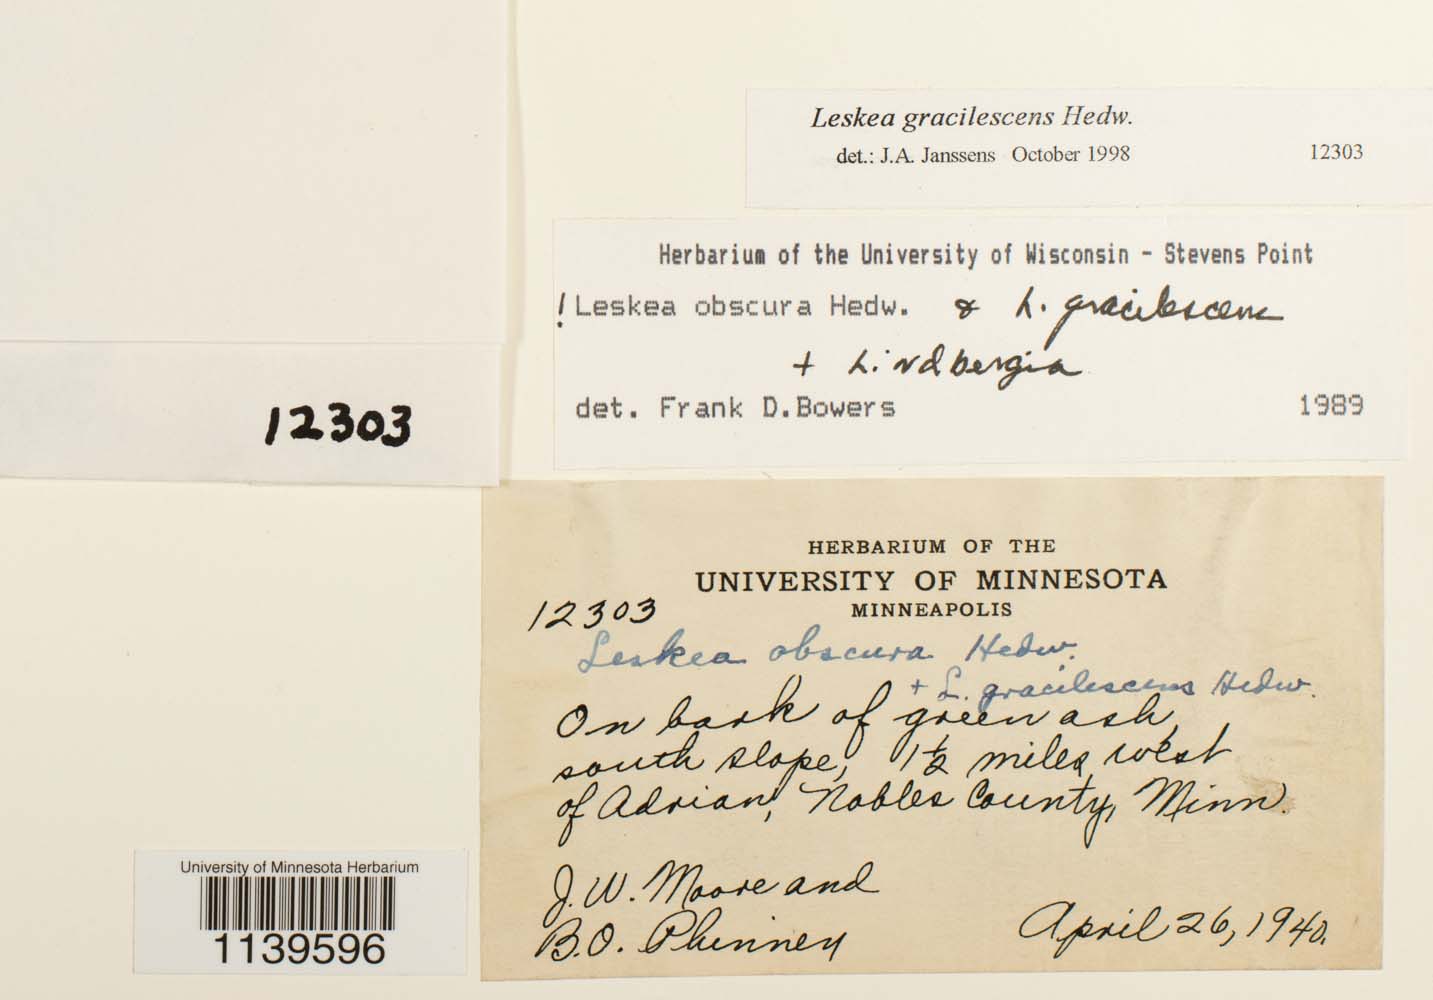 Leskea gracilescens Hedw.
det.: J.A. Janssens October 1998 12303
Herbarium of the University of Wisconsin - Stevens Point
! Leskea obscura Hedw. & L. gracilescens
+ Lindbergia
det. Frank D.Bowers 1989
12303
HERBARIUM OF THE
UNIVERSITY OF MINNESOTA
MINNEAPOLIS
12303
Leskea obscura Hedw.
+ L. gracilescens Hedw.
On bark of green ash,
south slope, 1½ miles west
of Adrian, Nobles County, Minn.
J. W. Moore and
B. O. Phinney
April 26, 1940.
University of Minnesota Herbarium
1139596